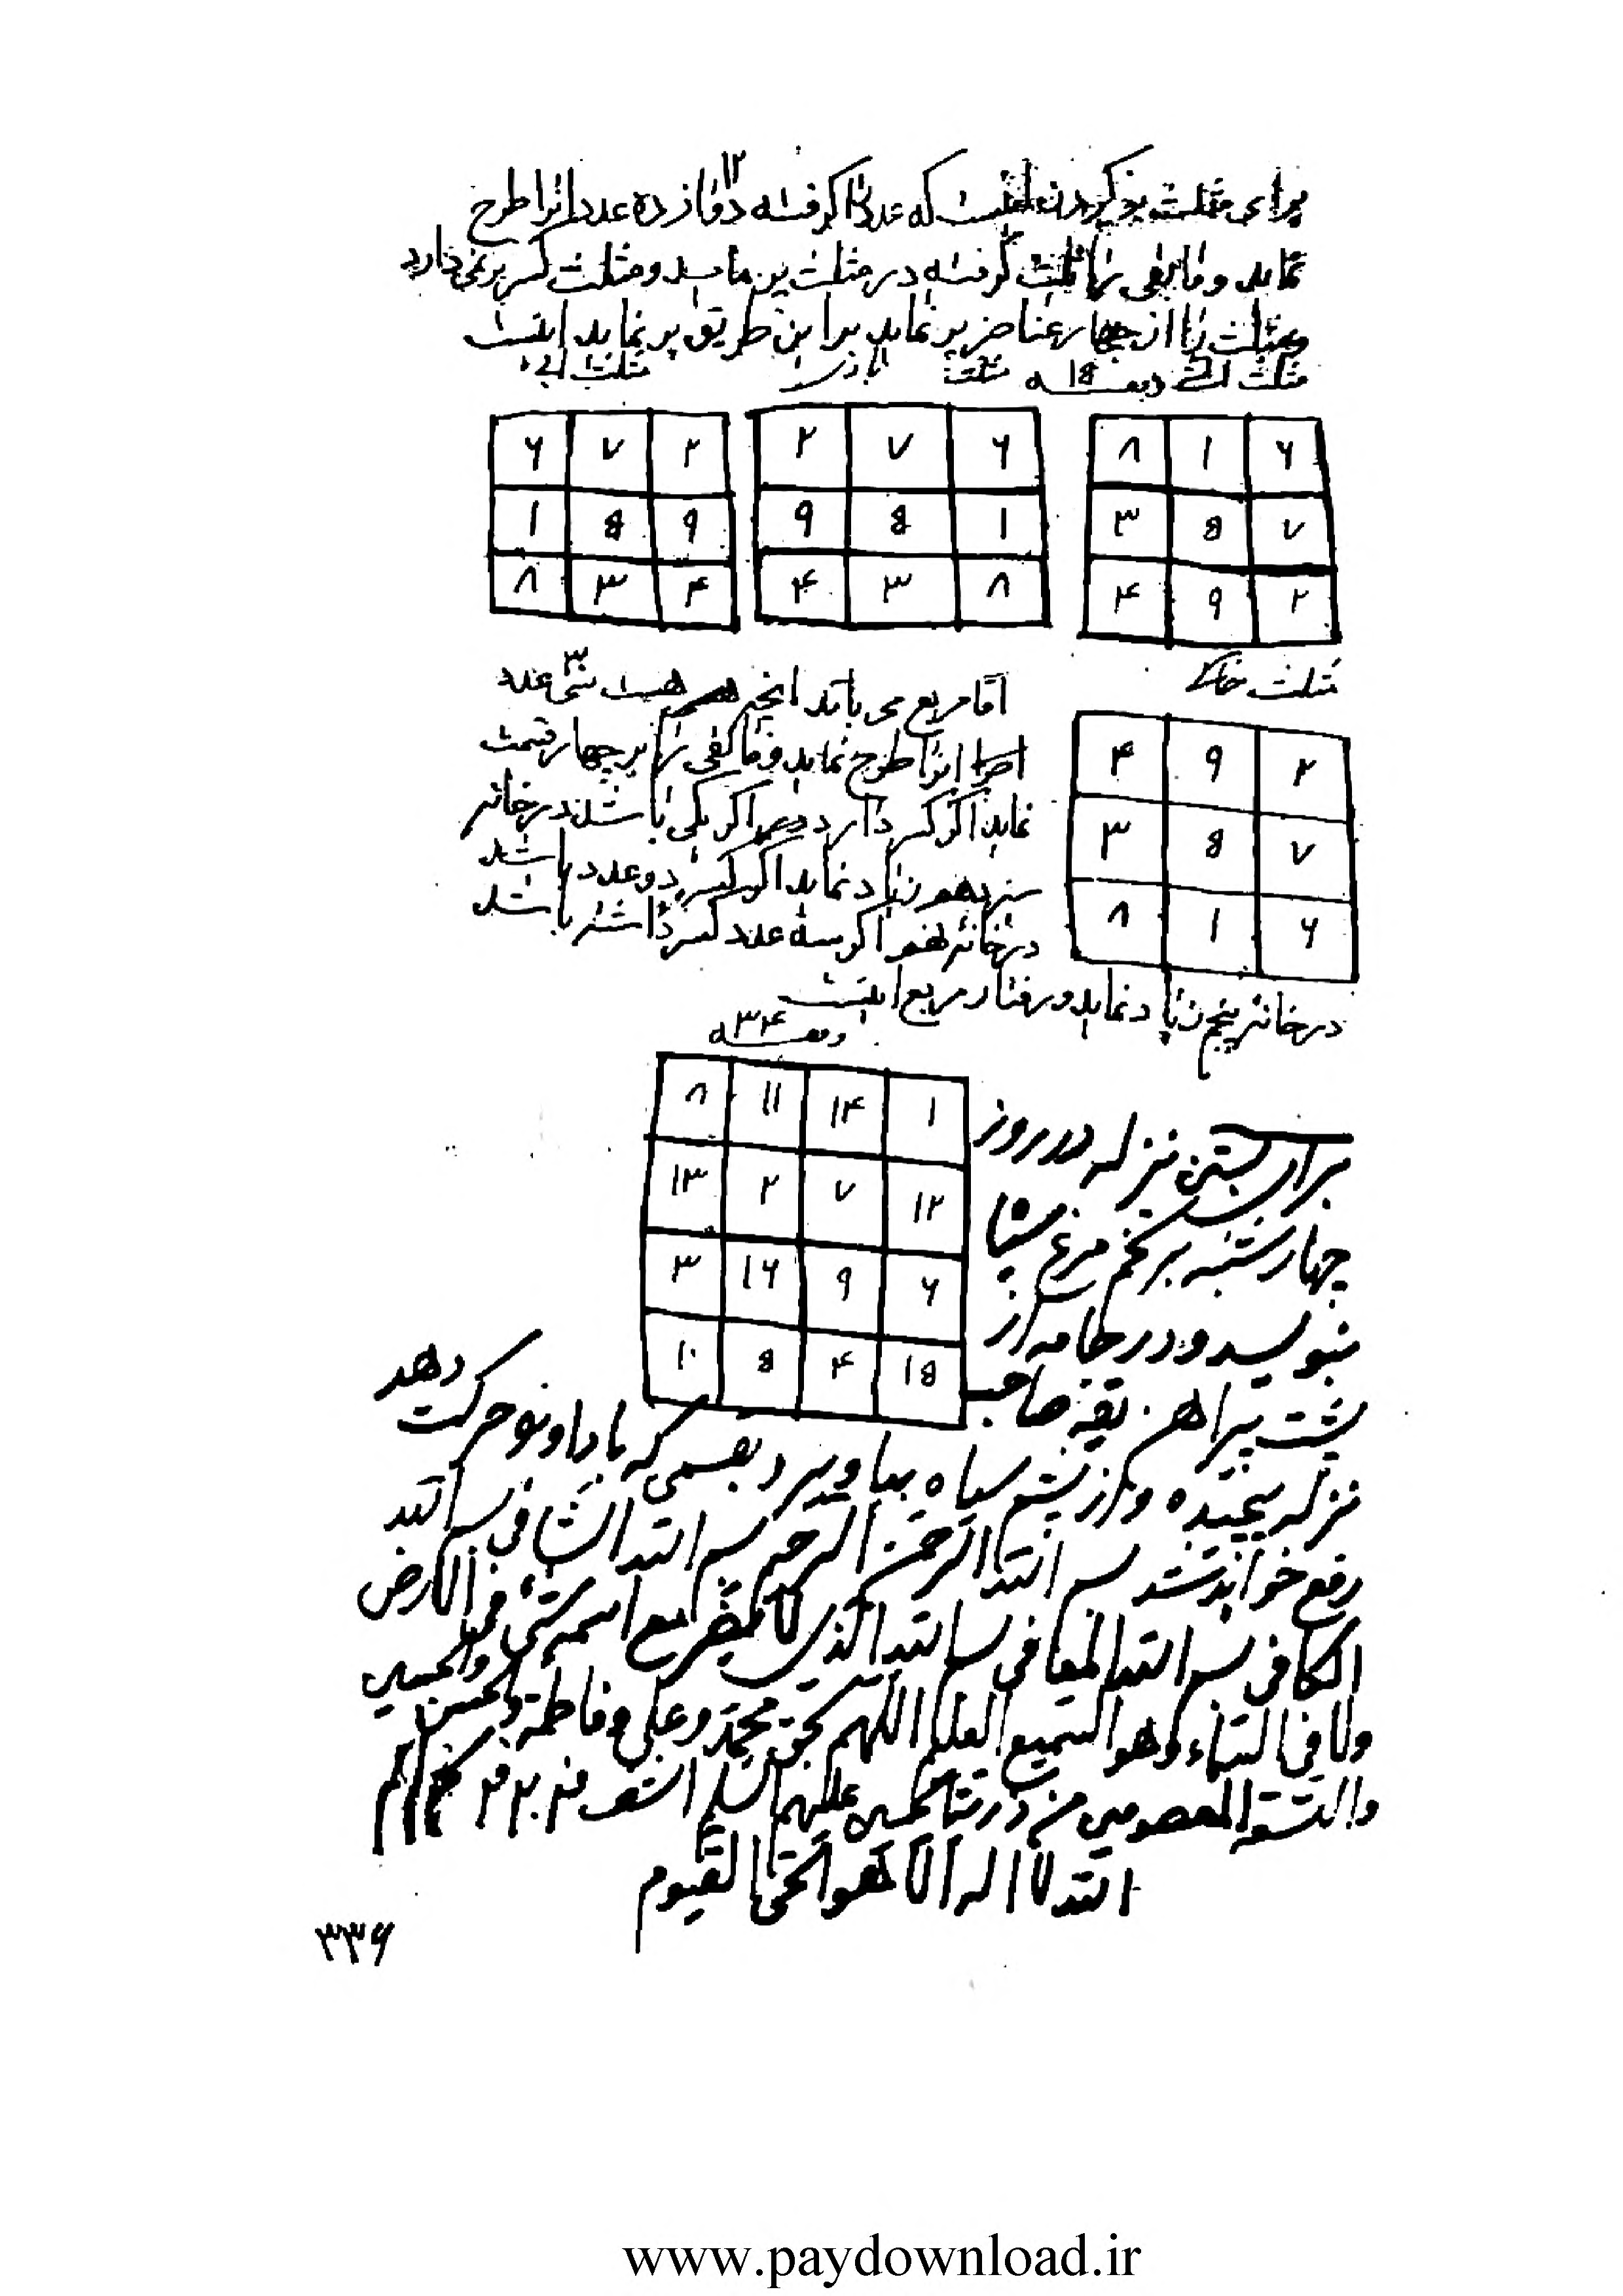 برای مثلث پر کردن اینست که عدد را گرفته دوازده عدد انرا طرح
۱۲
نماید و مابقی را ثلث گرفته در مثلث پر نماید و مثلث کسر بر نمی دارد
مثلث را از چهار عناصر پر نماید براین طریق پر نماید اینست
مثلث اتشی وفقه ۱۵ مثلث بادی مثلث ابی
۶ ۷ ۲ ۲ ۷ ۶ ۸ ۱ ۶
۱ ۵ ۹ ۹ ۵ ۱ ۳ ۵ ۷
۸ ۳ ۴ ۴ ۳ ۸ ۴ ۹ ۲
مثلث خاکی
۴ ۹ ۲
۳ ۵ ۷
۸ ۱ ۶
اما مربع می باید انچه هست سی عدد
۳۰
انرا طرح نماید و مابقی را بر چهار قسمت
نماید اگر کسر دارد اگر یکی باشد در خانه
سیزدهم زیاد نماید اگر کسر دو عدد باشد
در خانه نهم اگر سه عدد کسر داشته باشد
در خانه پنجم زیاد نماید و رفتار مربع اینست
وفقه ۳۴
۸ ۱۱ ۱۴ ۱
۱۳ ۲ ۷ ۱۲
۳ ۱۶ ۹ ۶
۱۰ ۵ ۴ ۱۵
برای بستن نزله در روز
چهارشنبه بر تخم مرغ
بنویسد و در جامه از
پشت پیراهن یقه صاحب
نزله پیچیده و از پشم سیاه بیاویزد بقسمی که باد او را حرکت دهد
رفع خواهد شد بسم الله الرحمن الرحیم بسم الله الشافی بسم الله
الکافی بسم الله المعافی بسم الله الذی لا یضر مع اسمه شیء فی الارض
ولا فی السماء وهو السمیع العلیم اللهم بحق محمد و علی و فاطمة والحسن والحسین
والتسعة المعصومین من ذریة الحسین علیهم السلام
الله لا اله الا هو الحی القیوم
۳۳۶
www.paydownload.ir